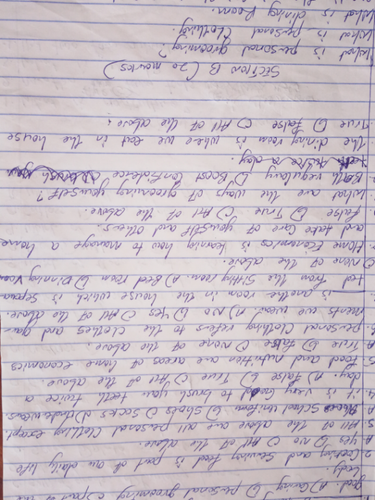 God. A) Caring b) personal grooming c) part of
body.
2. Cooking and serving food is part of our daily life
A) Yes b) NO c) All of the above.
3. All of the above are all personal clothing except
A) School uniform b) Shoes c) Socks d)
4. it is very good to brush your teeth twice a
day. A) false b) True c) All of the above
5. Food and nutrition are areas of home economics
A) True b) false c) None of the above.
6. personal clothing refers to the clothes and gar-
ments we wear. A) NO b) Yes c) All of the above.
is another room in the house which is separa-
ted from the sitting room. A) Bed room b) Dinning room
c) none of the above.
Home Economics is learning how to manage a home
and take care of yourself and others.
false b) True c) All of the above.
What are the ways of greening yourself?
Bath regulary b) Boost Confidence
twice a day.
the dining room is where we eat in the house
True b) false c) All of the above.
SECTION B (20 marks)
What is personal greening?
What is personal clothing.
What is dining Room.